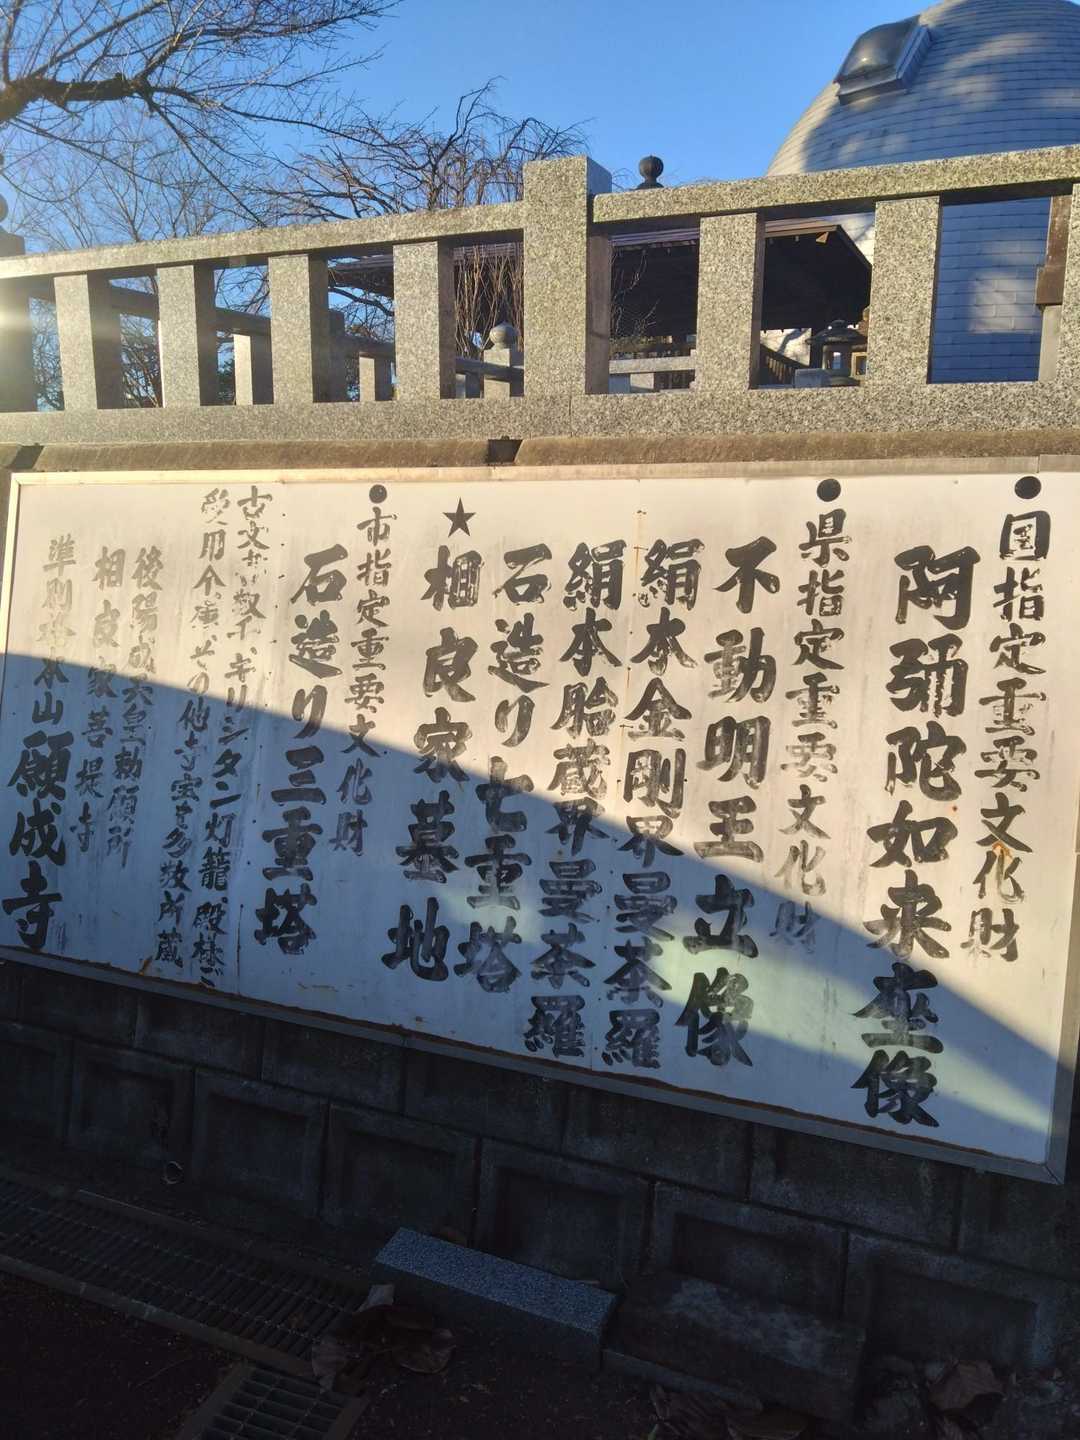 ●国指定重要文化財
阿弥陀如来坐像
●県指定重要文化財
不動明王立像
絹本金剛界曼荼羅
絹本胎蔵界曼荼羅
石造り七重塔
★相良家墓地
●市指定重要文化財
石造り三重塔
古文書数千、キリシタン灯籠、殿様ご
受用 その他寺宝多数所蔵
後陽成天皇勅願所
相良家菩提寺
準別格本山願成寺